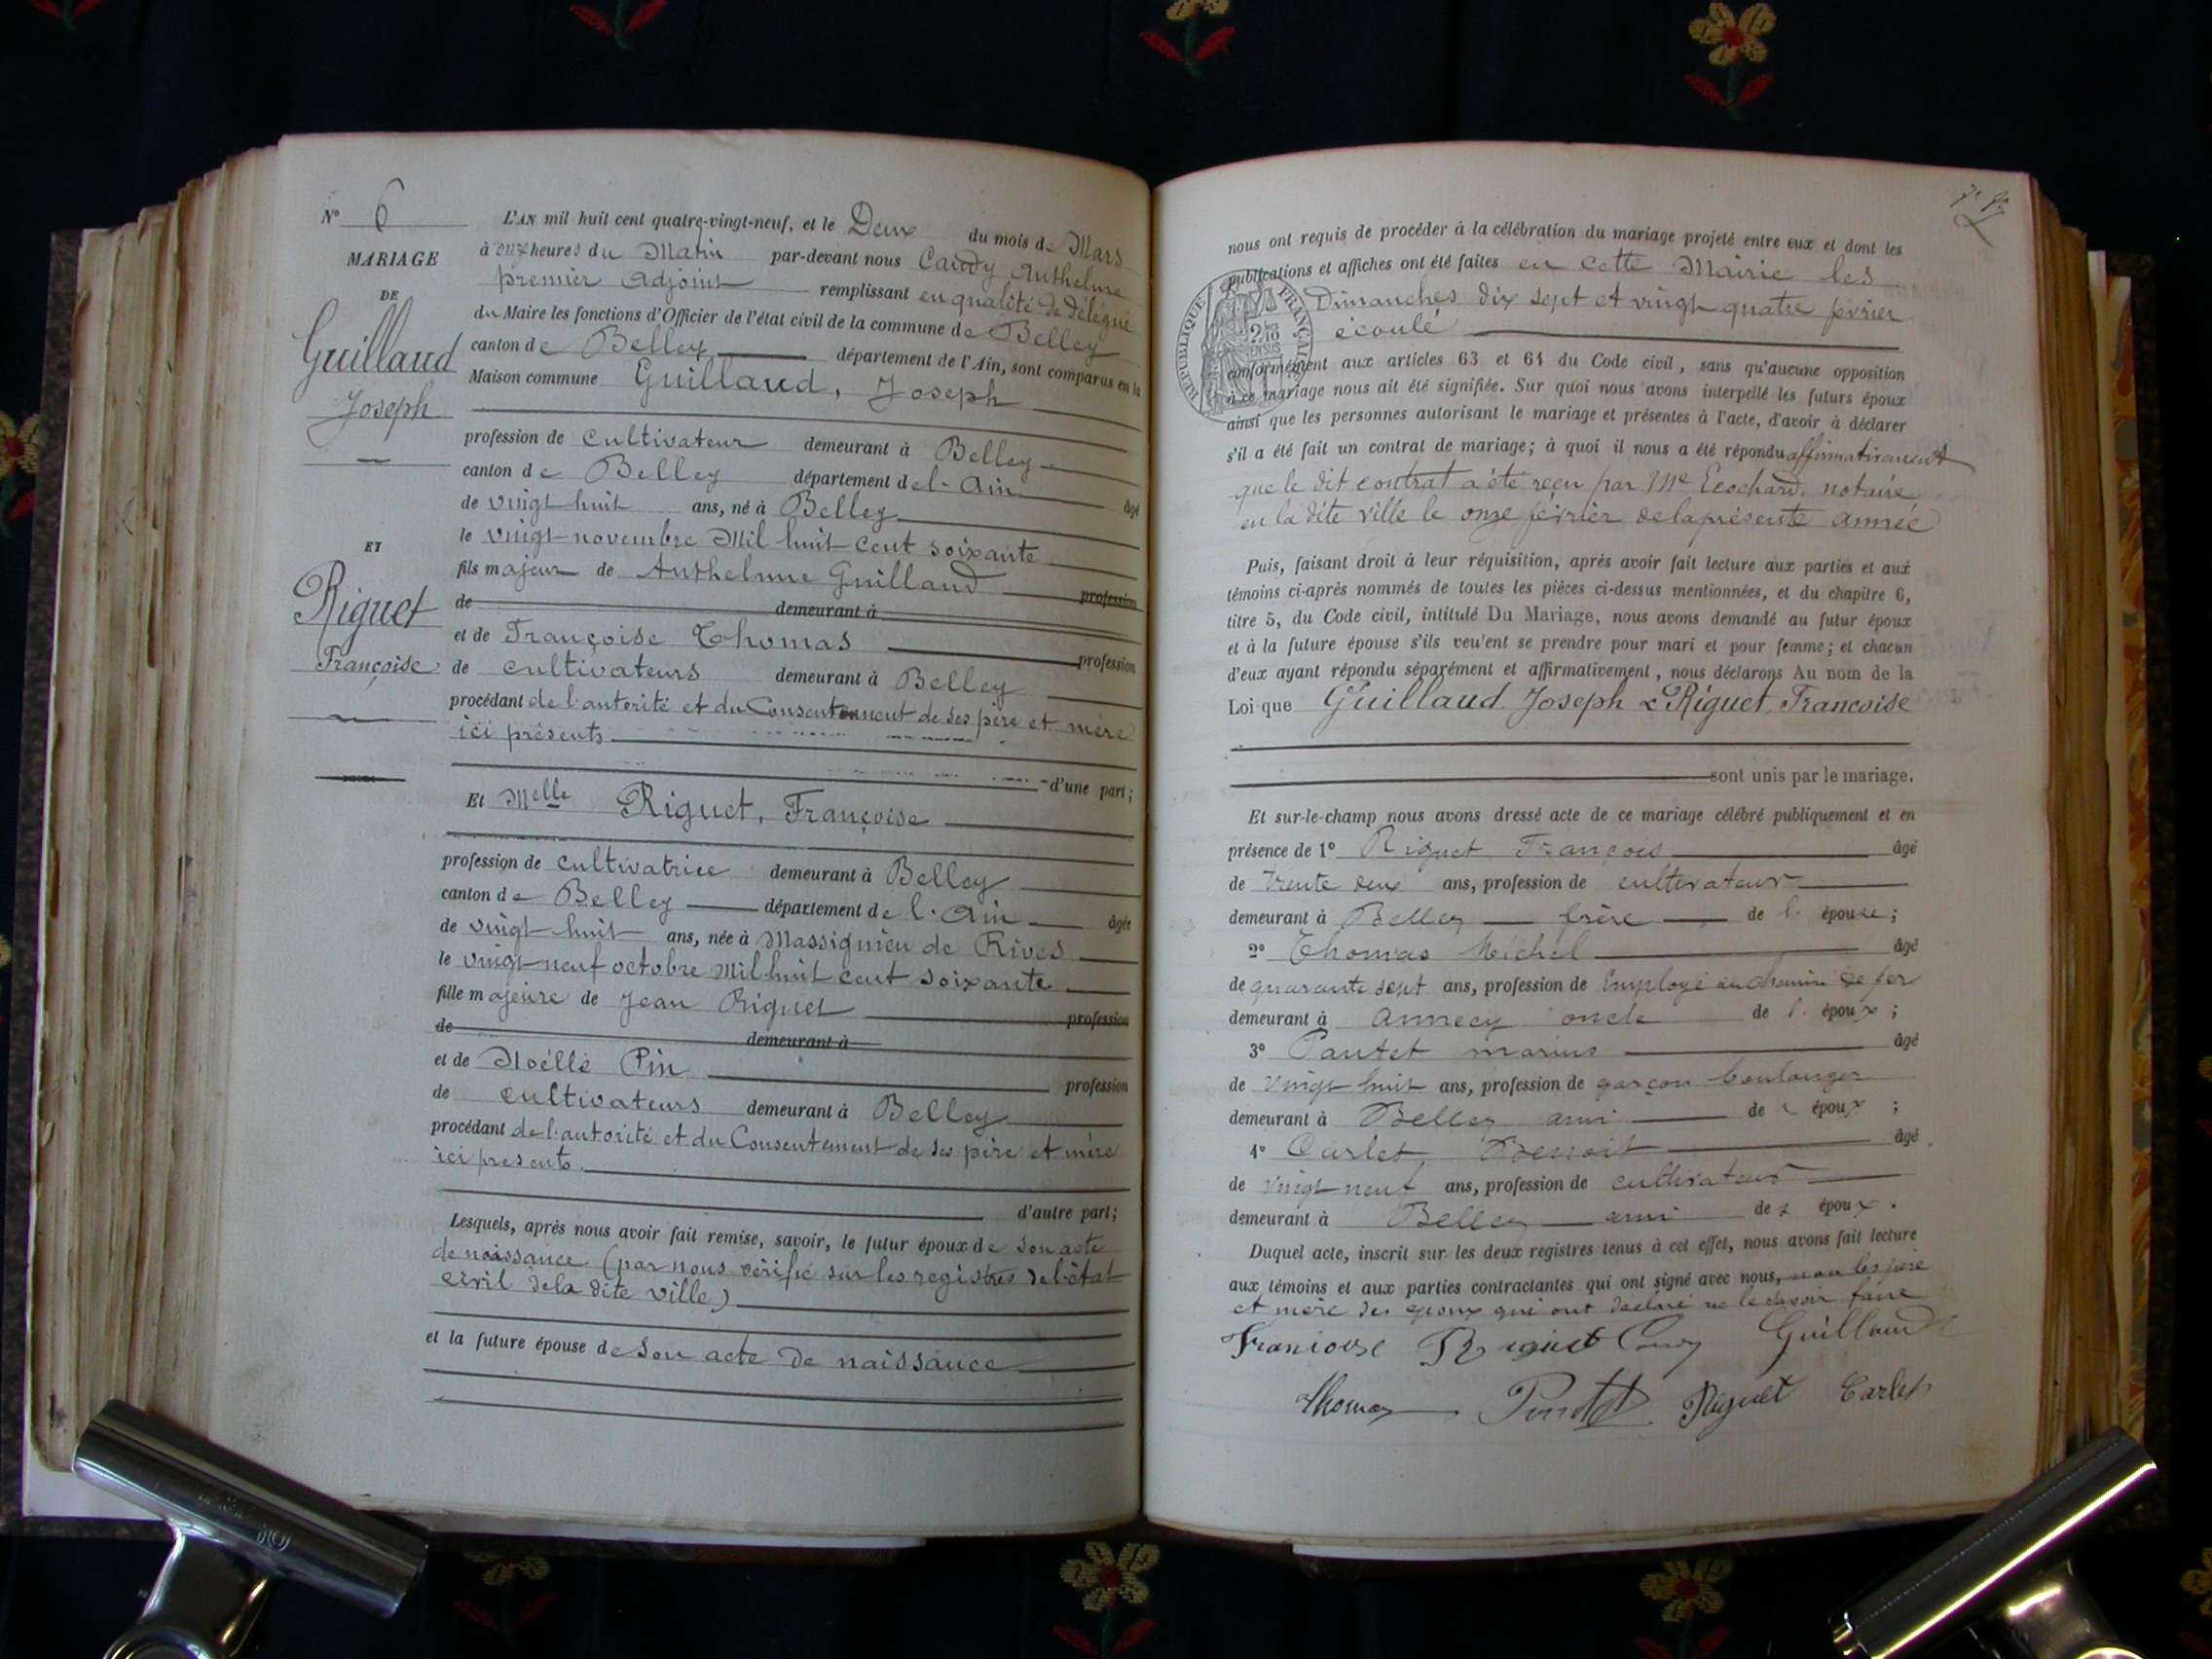 N° 6
MARIAGE
DE
Guillaud
Joseph
ET
Riguet
Françoise
L'AN mil huit cent quatre-vingt-neuf, et le Deux du mois de Mars
à onze heures du Matin par-devant nous Candy Anthelme
premier Adjoint remplissant en qualité de délégué
du Maire les fonctions d'Officier de l'état civil de la commune de Belley
canton de Belley département de l'Ain, sont comparus en la
Maison commune Guillaud, Joseph
profession de cultivateur demeurant à Belley
canton de Belley département de l'Ain âgé
de vingt huit ans, né à Belley
le vingt novembre Mil huit cent soixante
fils majeur de Anthelme Guillaud profession
de demeurant à
et de Françoise Thomas profession
de cultivateurs demeurant à Belley
procédant de l'autorité et du Consentement de ses père et mère
ici présents
d'une part;
Et Melle Riguet, Françoise
profession de cultivatrice demeurant à Belley
canton de Belley département de l'Ain âgée
de vingt huit ans, née à Massignieu de Rives
le vingt neuf octobre Mil huit cent soixante
fille majeure de Jean Riguet profession
de demeurant à
et de Noëlle Pin profession
de cultivateurs demeurant à Belley
procédant de l'autorité et du Consentement de ses père et mère
ici presents
d'autre part;
Lesquels, après nous avoir fait remise, savoir, le futur époux de son acte
de naissance (par nous vérifié sur les registres de l'état
civil de la dite ville)
et la future épouse de son acte de naissance
nous ont requis de procéder à la célébration du mariage projeté entre eux et dont les
publications et affiches ont été faites en cette Mairie les
Dimanches dix sept et vingt quatre février
écoulé
RÉPUBLIQUE FRANÇAISE
conformément aux articles 63 et 64 du Code civil, sans qu'aucune opposition
à ce mariage nous ait été signifiée. Sur quoi nous avons interpellé les futurs époux
ainsi que les personnes autorisant le mariage et présentes à l'acte, d'avoir à déclarer
s'il a été fait un contrat de mariage; à quoi il nous a été répondu affirmativement
que le dit contrat a été reçu par Me Ecochard, notaire
en la dite ville le onze février de la présente année
Puis, faisant droit à leur réquisition, après avoir fait lecture aux parties et aux
témoins ci-après nommés de toutes les pièces ci-dessus mentionnées, et du chapitre 6,
titre 5, du Code civil, intitulé Du Mariage, nous avons demandé au futur époux
et à la future épouse s'ils veulent se prendre pour mari et pour femme; et chacun
d'eux ayant répondu séparément et affirmativement, nous déclarons Au nom de la
Loi que Guillaud Joseph & Riguet Francoise
sont unis par le mariage.
Et sur-le-champ nous avons dressé acte de ce mariage célébré publiquement et en
présence de 1° Riguet François âgé
de trente deux ans, profession de cultivateur
demeurant à Belley frère de l' épouse;
2° Thomas Michel âgé
de quarante sept ans, profession de Employé au chemin de fer
demeurant à Annecy oncle de l' époux;
3° Pautet marius âgé
de vingt huit ans, profession de garçon boulanger
demeurant à Belley ami de l' époux;
4° Carlet Benoit âgé
de vingt neuf ans, profession de cultivateur
demeurant à Belley ami de l' époux.
Duquel acte, inscrit sur les deux registres tenus à cet effet, nous avons fait lecture
aux témoins et aux parties contractantes qui ont signé avec nous, non les père
et mère des époux qui ont déclaré ne le savoir faire
Francoise Riguet Candy Guillaud
Thomas Pautet Riguet Carlet